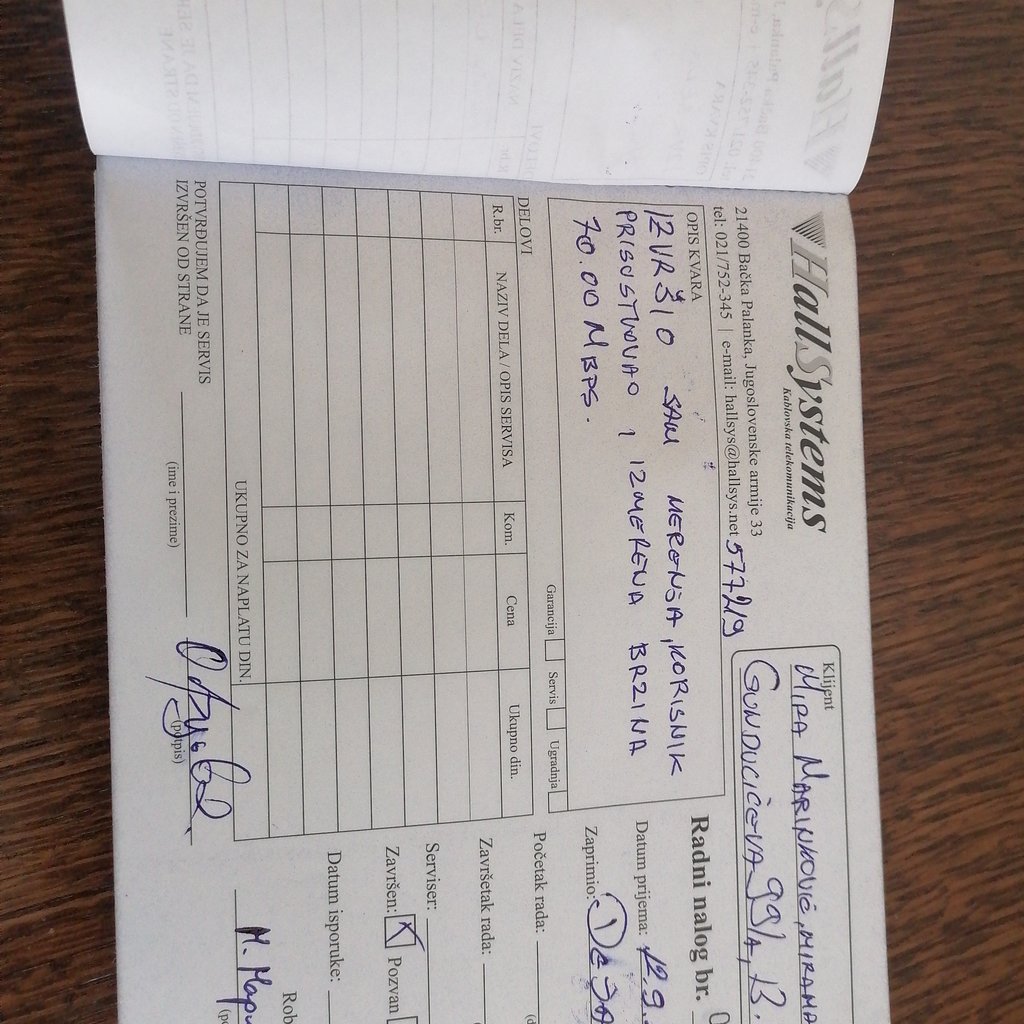 HallSystems
Kablovska telekomunikacija
21400 Bačka Palanka, Jugoslovenske armije 33
tel: 021/752-345 | e-mail: hallsys@hallsys.net
577219
Klijent
MIRA MARINKOVIĆ, MIRAMA
GUNDULIĆEVA 99/A, B.
OPIS KVARA
IZVRŠIO SAM MERENJA, KORISNIK
PRISUSTVOVAO I IZMERENA BRZINA
70.00 MBPS.
Garancija Servis Ugradnja
Radni nalog br. 0
Datum prijema: 12.9.
Zaprimio:
Početak rada:
Završetak rada:
Serviser:
Završen: X Pozvan
Datum isporuke:
DELOVI
R.br. NAZIV DELA / OPIS SERVISA Kom. Cena Ukupno din.
UKUPNO ZA NAPLATU DIN.
POTVRĐUJEM DA JE SERVIS
IZVRŠEN OD STRANE
(ime i prezime) (potpis)
Rob
М. Мари